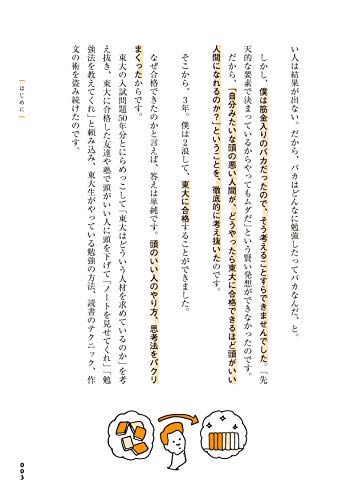 い人は結果が出ない。だから、バカはどんなに勉強したってバカなんだ、と。
しかし、僕は筋金入りのバカだったので、そう考えることすらできませんでした。「先
天的な要素で決まっているからやってもムダだ」という賢い発想ができなかったのです。
だから、「自分みたいな頭の悪い人間が、どうやったら東大に合格できるほど頭がいい
人間になれるのか？」ということを、徹底的に考え抜いたのです。
そこから、3年。僕は2浪して、東大に合格することができました。
なぜ合格できたのかと言えば、答えは単純です。頭のいい人のやり方、思考法をパクリ
まくったからです。
東大の入試問題50年分とにらめっこして「東大はどういう人材を求めているのか」を考
え抜き、東大に合格した友達や塾で頭がいい人に頭を下げて「ノートを見せてくれ」「勉
強法を教えてくれ」と頼み込み、東大生がやっている勉強の方法、読書のテクニック、作
文の術を盗み続けたのです。
はじめに
003